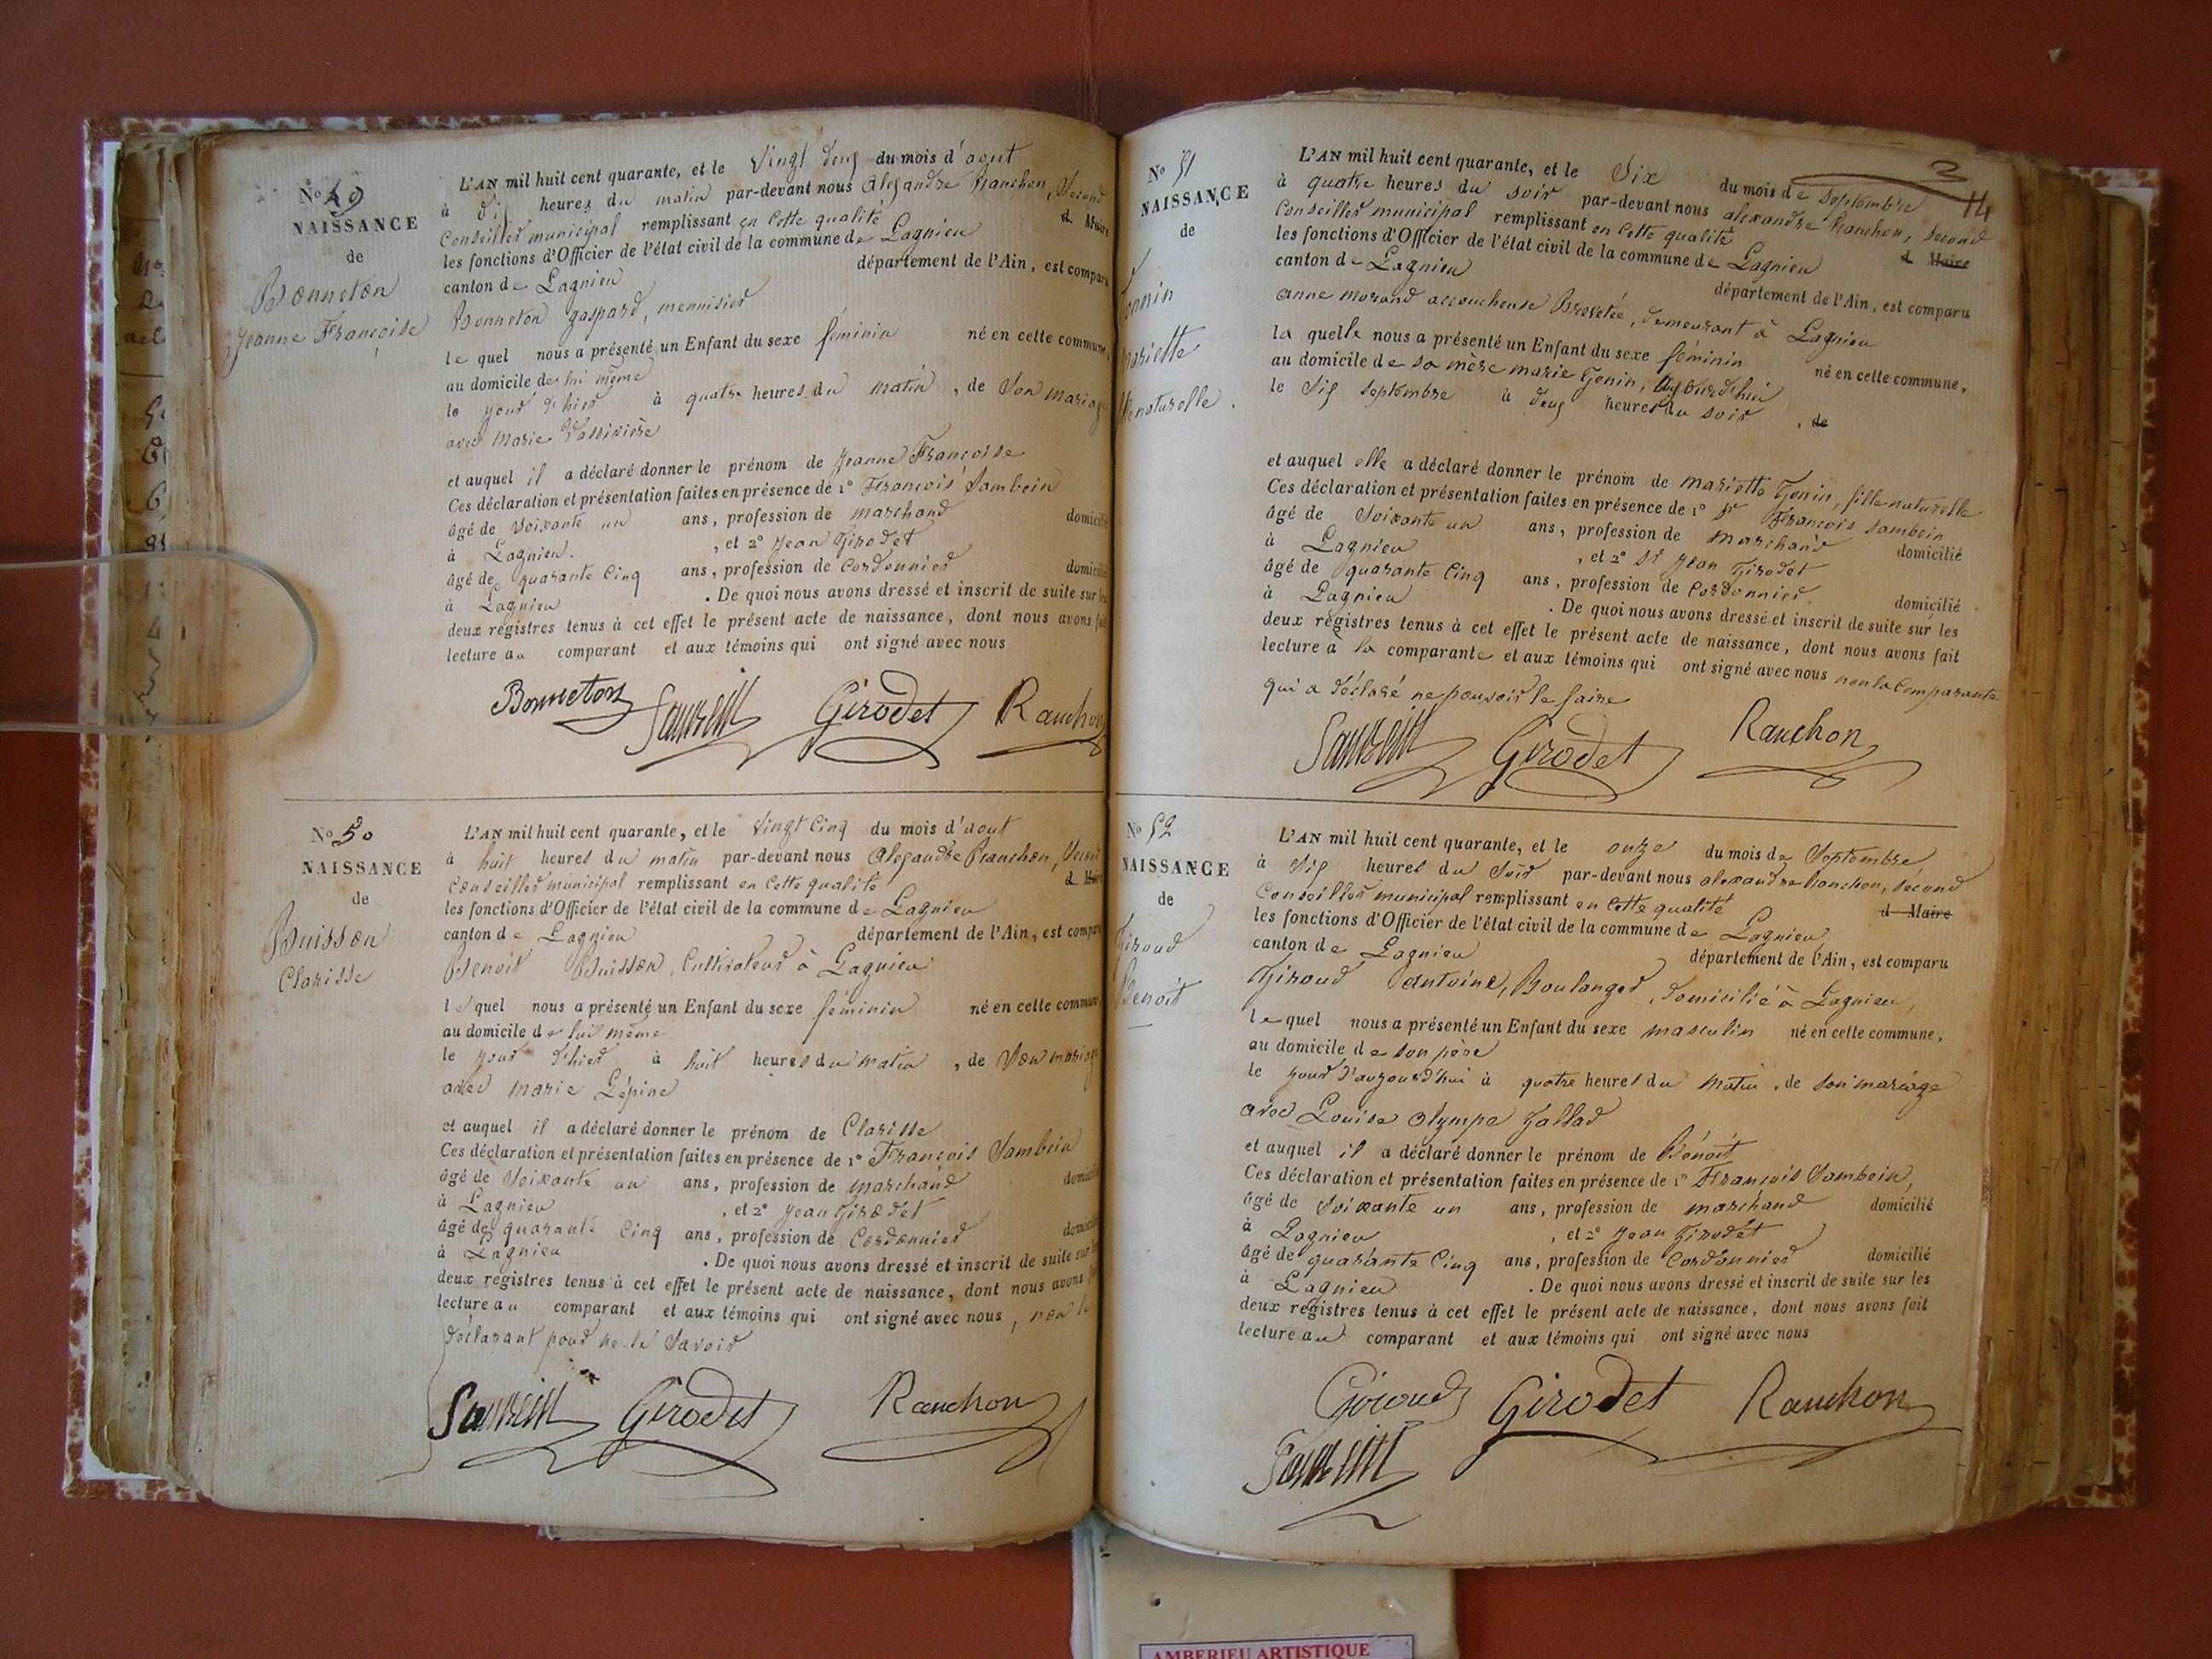 No 49
NAISSANCE
de
Bonneton
Jeanne Françoise
L'AN mil huit cent quarante, et le Vingt deux du mois d'aout
à dix heures du matin par-devant nous Alexandre Ranchon, Second
Conseiller municipal remplissant en cette qualité d Maire
les fonctions d'Officier de l'état civil de la commune de Lagnieu
canton de Lagnieu département de l'Ain, est comparu
Bonneton gaspard, menuisier
le quel nous a présenté un Enfant du sexe féminin né en cette commune,
au domicile de lui même
le jour d'hier à quatre heures du matin, de Son mariage
avec Marie
et auquel il a déclaré donner le prénom de Jeanne Françoise
Ces déclaration et présentation faites en présence de 1° François Sambein
âgé de Soixante un ans, profession de marchand domicilié
à Lagnieu. , et 2° Jean Girodet
âgé de quarante Cinq ans, profession de Cordonnier domicilié
à Lagnieu . De quoi nous avons dressé et inscrit de suite sur les
deux registres tenus à cet effet le présent acte de naissance, dont nous avons fait
lecture au comparant et aux témoins qui ont signé avec nous
Bonneton Sambein Girodet Ranchon
No 50
NAISSANCE
de
Buisson
Clarisse
L'AN mil huit cent quarante, et le Vingt Cinq du mois d'aout
à huit heures du matin par-devant nous Alexandre Ranchon, Second
Conseiller municipal remplissant en cette qualité d Maire
les fonctions d'Officier de l'état civil de la commune de Lagnieu
canton de Lagnieu département de l'Ain, est comparu
Benoit Buisson, Cultivateur à Lagnieu
lequel nous a présenté un Enfant du sexe féminin né en cette commune
au domicile de lui même
le jour d'hier à huit heures du matin, de Son mariage
avec marie Lépine
et auquel il a déclaré donner le prénom de Clarisse
Ces déclaration et présentation faites en présence de 1° François Sambein
âgé de Soixante un ans, profession de marchand domicilié
à Lagnieu , et 2° Jean Girodet
âgé de quarante Cinq ans, profession de Cordonnier domicilié
à Lagnieu . De quoi nous avons dressé et inscrit de suite sur les
deux registres tenus à cet effet le présent acte de naissance, dont nous avons fait
lecture au comparant et aux témoins qui ont signé avec nous, non le
déclarant pour ne le Savoir
Sambein Girodet Ranchon
No 51
NAISSANCE
de
Mariette
naturelle.
14
L'AN mil huit cent quarante, et le Six du mois de Septembre
à quatre heures du soir par-devant nous alexandre Ranchon, Second
Conseiller municipal remplissant en cette qualité d Maire
les fonctions d'Officier de l'état civil de la commune de Lagnieu
canton de Lagnieu département de l'Ain, est comparu
anne morand accoucheuse Brevetée, demeurant à Lagnieu
la quelle nous a présenté un Enfant du sexe féminin né en cette commune,
au domicile de sa mère marie Gonin, aujourd'hui
le Six septembre à deux heures du soir, de
et auquel elle a déclaré donner le prénom de Mariette Gonin, fille naturelle
Ces déclaration et présentation faites en présence de 1° Sr François Sambein
âgé de Soixante un ans, profession de Marchand domicilié
à Lagnieu , et 2° Sr Jean Girodet
âgé de quarante Cinq ans, profession de Cordonnier domicilié
à Lagnieu . De quoi nous avons dressé et inscrit de suite sur les
deux registres tenus à cet effet le présent acte de naissance, dont nous avons fait
lecture à la comparante et aux témoins qui ont signé avec nous non la Comparante
qui a déclaré ne pouvoir le faire
Sambein Girodet Ranchon
No 52
NAISSANCE
de
Giroud
Benoit
L'AN mil huit cent quarante, et le onze du mois de Septembre
à Six heures du Soir par-devant nous alexandre Ranchon, Second
Conseiller municipal remplissant en cette qualité d Maire
les fonctions d'Officier de l'état civil de la commune de Lagnieu
canton de Lagnieu département de l'Ain, est comparu
Giroud Antoine, Boulanger, domicilié à Lagnieu,
lequel nous a présenté un Enfant du sexe masculin né en cette commune,
au domicile de son père
le jour d'aujourd'hui à quatre heures du matin, de son mariage
avec Louise Olympe
et auquel il a déclaré donner le prénom de Bénoit
Ces déclaration et présentation faites en présence de 1° François Sambein,
âgé de Soixante un ans, profession de marchand domicilié
à Lagnieu , et 2° Jean Girodet
âgé de quarante Cinq ans, profession de Cordonnier domicilié
à Lagnieu . De quoi nous avons dressé et inscrit de suite sur les
deux registres tenus à cet effet le présent acte de naissance, dont nous avons fait
lecture au comparant et aux témoins qui ont signé avec nous
Giroud Girodet Ranchon
Sambein
AMBERIEU ARTISTIQUE